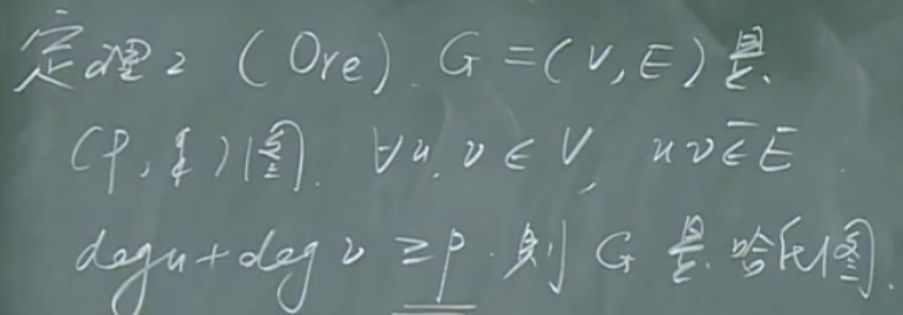 定理2 (Ore). G=(V,E)是
(p,q)图. ∀u,v∈V, uv∈̄E.
deg u+deg v ≥p. 则 G 是哈氏图.